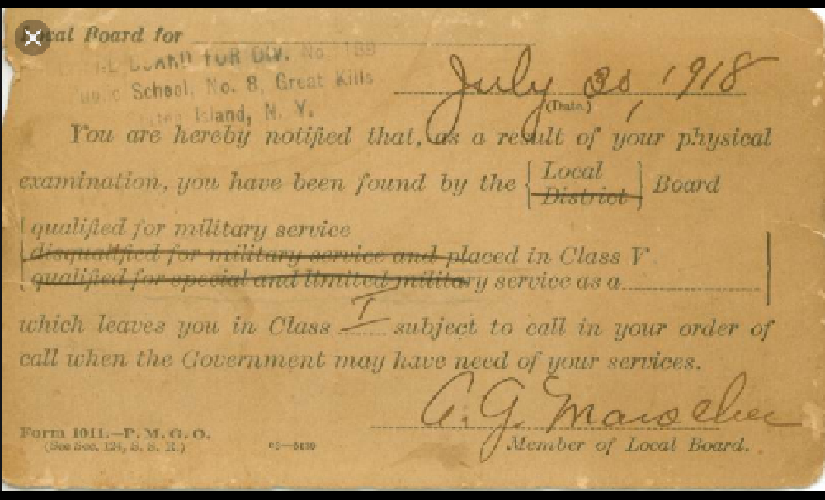 Local Board for
LOCAL BOARD FOR DIV. No. 188
Public School, No. 8, Great Kills
Staten Island, N. Y.
July 30, 1918
(Date.)
You are hereby notified that, as a result of your physical
examination, you have been found by the { Local District } Board
qualified for military service
disqualified for military service and placed in Class V
qualified for special and limited military service as a
which leaves you in Class I subject to call in your order of
call when the Government may have need of your services.
A. G.
Form 1011.—P. M. G. O.
(See Sec. 124, S. S. R.)
Member of Local Board.